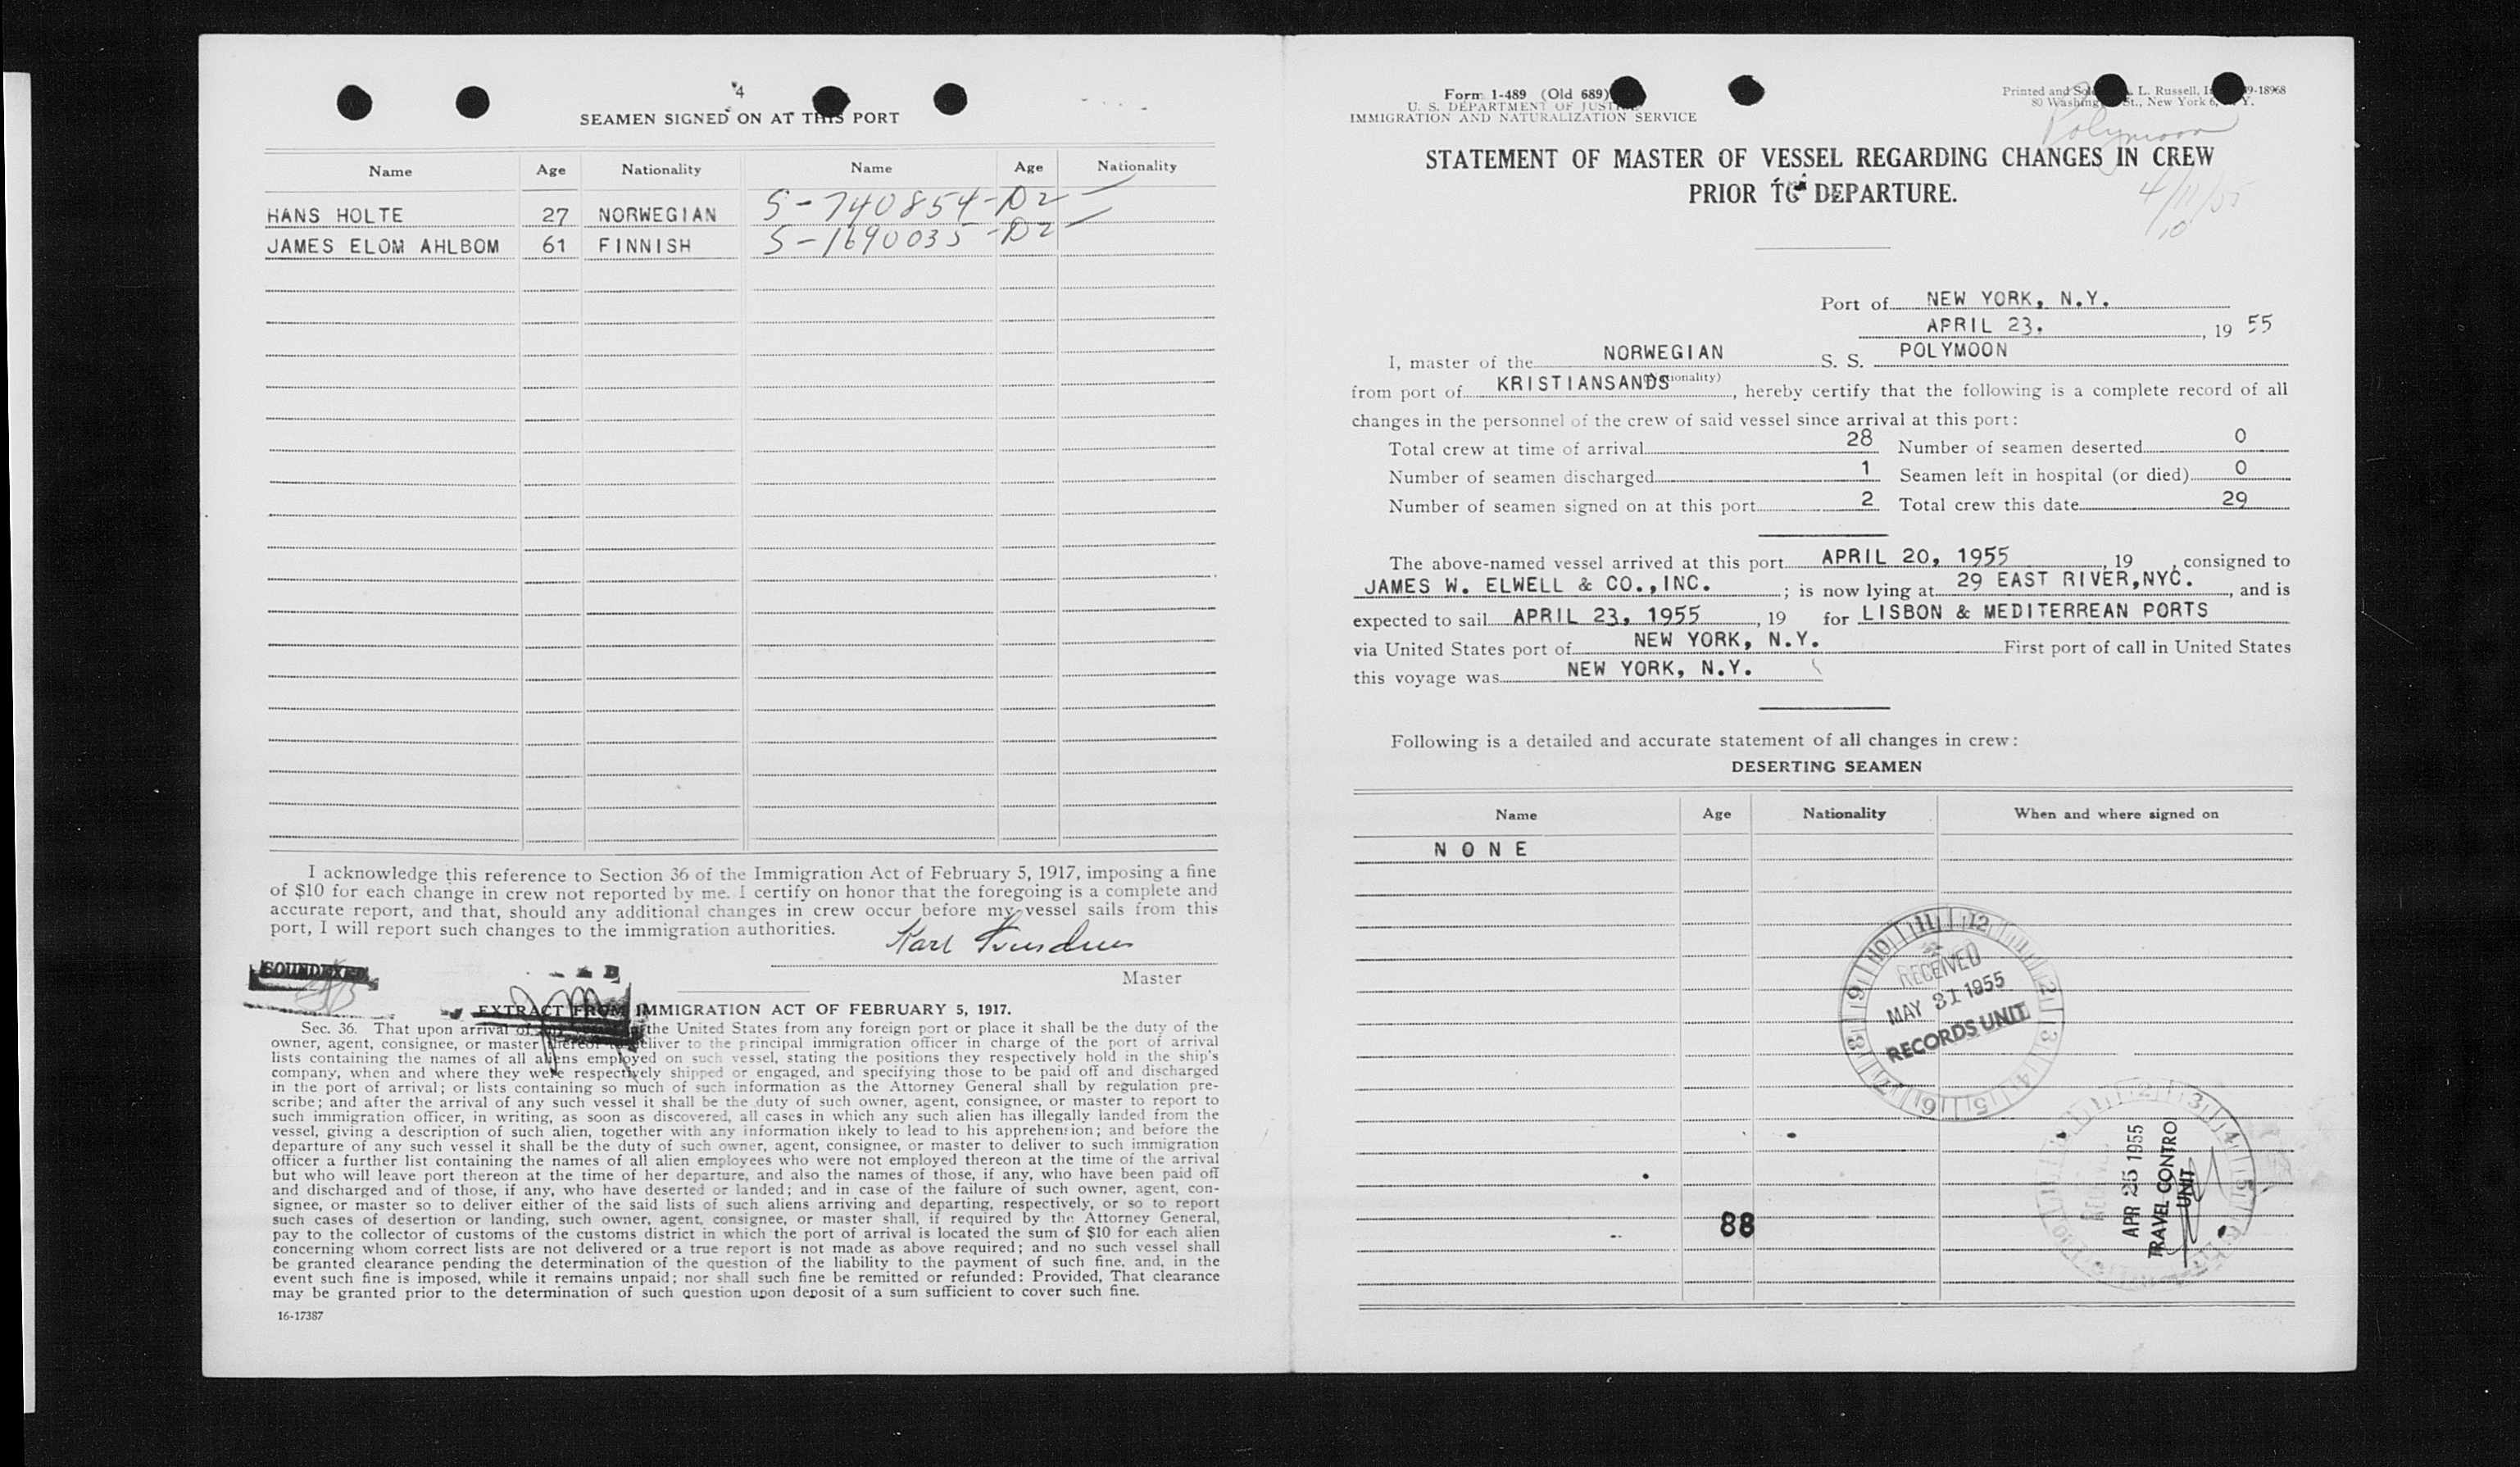 4
SEAMEN SIGNED ON AT THIS PORT
Name Age Nationality Name Age Nationality
HANS HOLTE 27 NORWEGIAN S-740854-D2
JAMES ELOM AHLBOM 61 FINNISH S-1690035-D2
I acknowledge this reference to Section 36 of the Immigration Act of February 5, 1917, imposing a fine
of $10 for each change in crew not reported by me. I certify on honor that the foregoing is a complete and
accurate report, and that, should any additional changes in crew occur before my vessel sails from this
port, I will report such changes to the immigration authorities.
Karl
Master
SOUNDEXED
EXTRACT FROM IMMIGRATION ACT OF FEBRUARY 5, 1917.
Sec. 36. That upon arrival of the United States from any foreign port or place it shall be the duty of the
owner, agent, consignee, or master thereof to deliver to the principal immigration officer in charge of the port of arrival
lists containing the names of all aliens employed on such vessel, stating the positions they respectively hold in the ship's
company, when and where they were respectively shipped or engaged, and specifying those to be paid off and discharged
in the port of arrival; or lists containing so much of such information as the Attorney General shall by regulation pre-
scribe; and after the arrival of any such vessel it shall be the duty of such owner, agent, consignee, or master to report to
such immigration officer, in writing, as soon as discovered, all cases in which any such alien has illegally landed from the
vessel, giving a description of such alien, together with any information likely to lead to his apprehension; and before the
departure of any such vessel it shall be the duty of such owner, agent, consignee, or master to deliver to such immigration
officer a further list containing the names of all alien employees who were not employed thereon at the time of the arrival
but who will leave port thereon at the time of her departure, and also the names of those, if any, who have been paid off
and discharged and of those, if any, who have deserted or landed; and in case of the failure of such owner, agent, con-
signee, or master so to deliver either of the said lists of such aliens arriving and departing, respectively, or so to report
such cases of desertion or landing, such owner, agent, consignee, or master shall, if required by the Attorney General,
pay to the collector of customs of the customs district in which the port of arrival is located the sum of $10 for each alien
concerning whom correct lists are not delivered or a true report is not made as above required; and no such vessel shall
be granted clearance pending the determination of the question of the liability to the payment of such fine, and, in the
event such fine is imposed, while it remains unpaid; nor shall such fine be remitted or refunded: Provided, That clearance
may be granted prior to the determination of such question upon deposit of a sum sufficient to cover such fine.
16-17387
Form 1-489 (Old 689)
U. S. DEPARTMENT OF JUSTICE
IMMIGRATION AND NATURALIZATION SERVICE
Printed and Sold L. Russell, 9-18968
80 Washington St., New York 6, N. Y.
Polymoon
STATEMENT OF MASTER OF VESSEL REGARDING CHANGES IN CREW
PRIOR TO DEPARTURE.
4/11/55
10
Port of NEW YORK, N.Y.
APRIL 23. , 19 55
I, master of the NORWEGIAN S. S. POLYMOON
(Nationality)
from port of KRISTIANSANDS , hereby certify that the following is a complete record of all
changes in the personnel of the crew of said vessel since arrival at this port:
Total crew at time of arrival 28 Number of seamen deserted 0
Number of seamen discharged 1 Seamen left in hospital (or died) 0
Number of seamen signed on at this port 2 Total crew this date 29
The above-named vessel arrived at this port APRIL 20, 1955 , 19 , consigned to
JAMES W. ELWELL & CO.,INC. ; is now lying at 29 EAST RIVER,NYC. , and is
expected to sail APRIL 23, 1955 , 19 for LISBON & MEDITERREAN PORTS
via United States port of NEW YORK, N.Y. First port of call in United States
this voyage was NEW YORK, N.Y.
Following is a detailed and accurate statement of all changes in crew:
DESERTING SEAMEN
Name Age Nationality When and where signed on
N O N E
11 12 1 2 3 4 5 6 7 8 9 10
RECEIVED
MAY 31 1955
RECORDS UNIT
APR 25 1955
TRAVEL CONTROL
UNIT
88